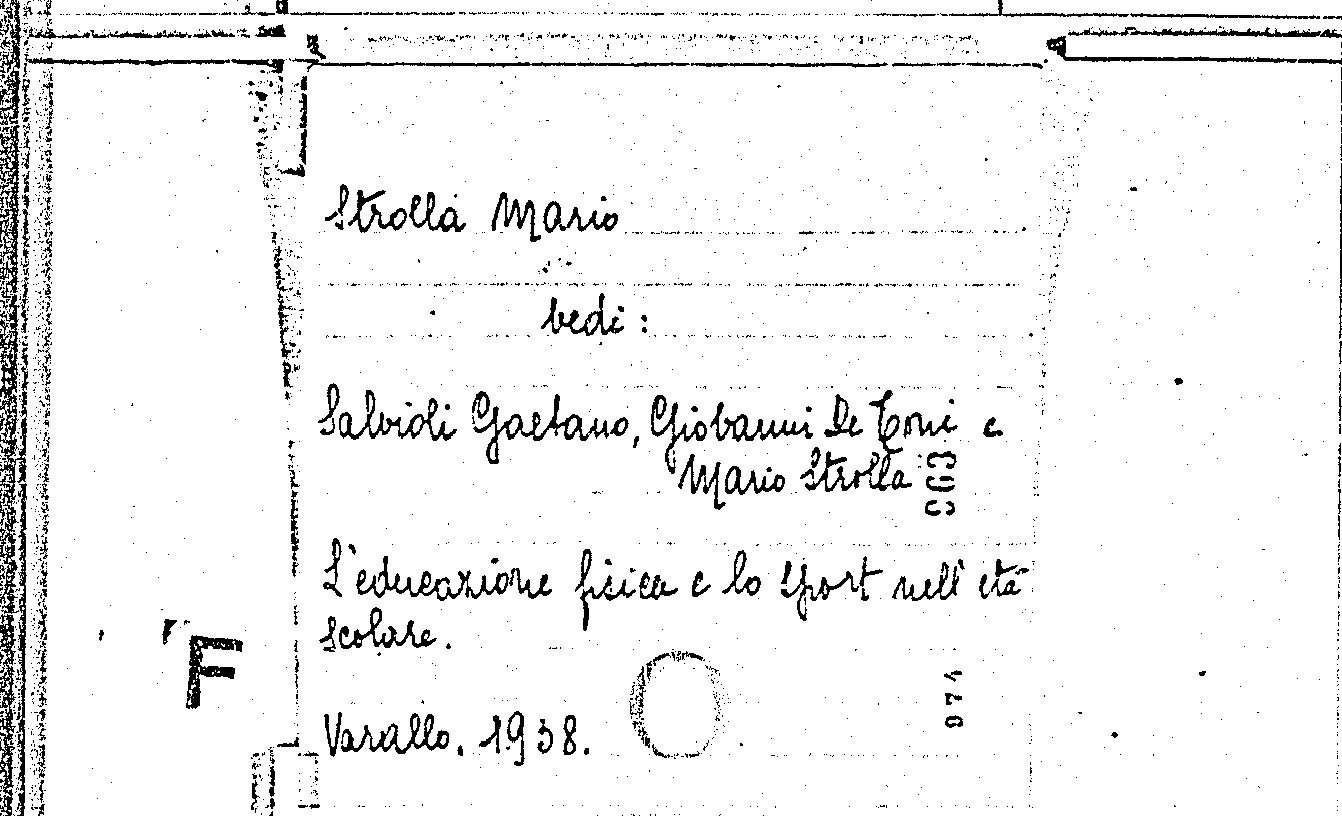 Strolla Mario
vedi:
Salvioli Gaetano, Giovanni De Toni e
Mario Strolla
L'educazione fisica e lo sport nell'età
scolare.
Varallo. 1938.
F
974